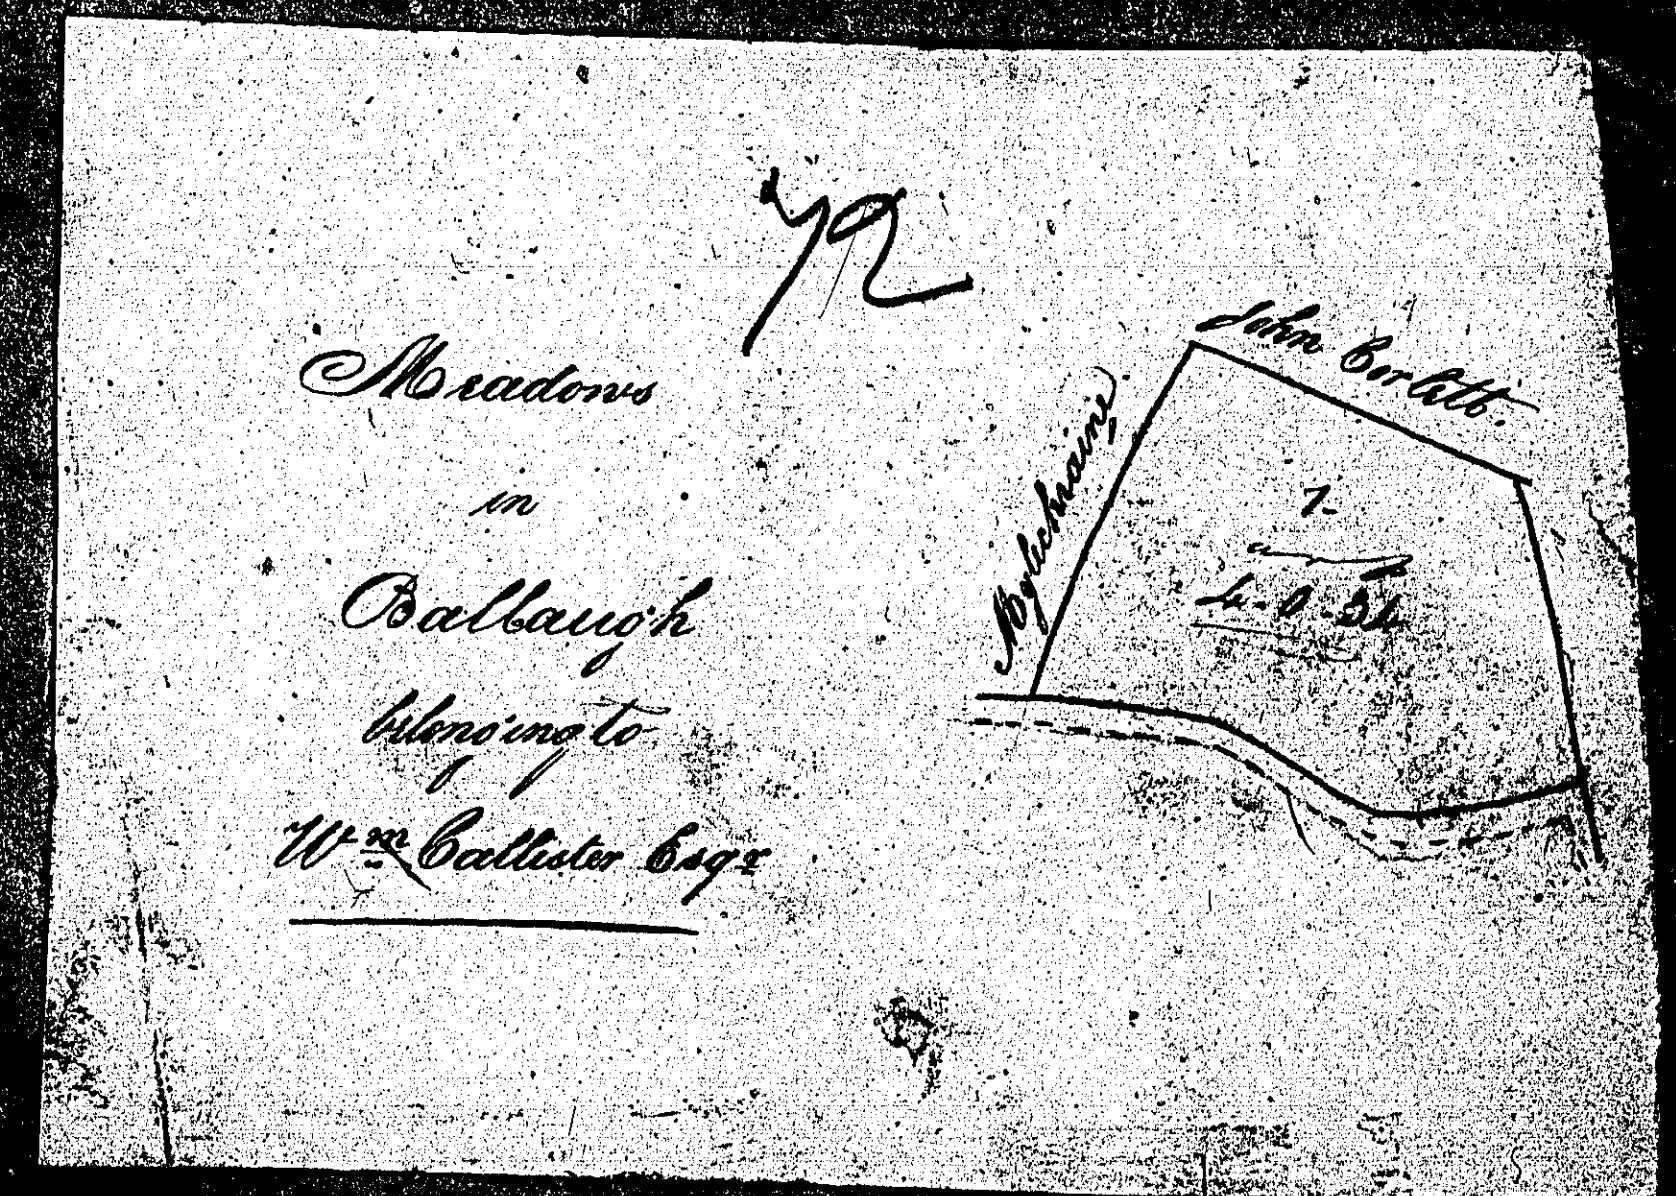 72
Meadows
in
Ballaugh
belonging to
Wm Callister Esqr
John Corlett
Mylechraine
1